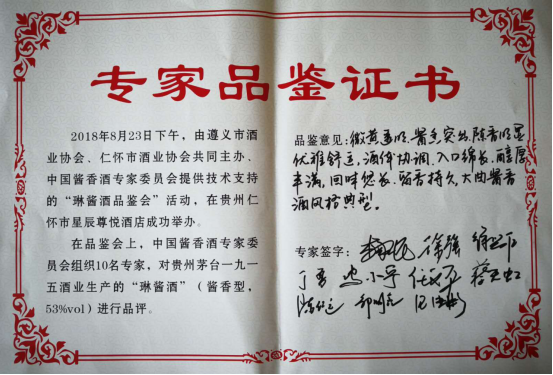 专家品鉴证书
2018年8月23日下午，由遵义市酒
业协会、仁怀市酒业协会共同主办、
中国酱香酒专家委员会提供技术支持
的“琳酱酒品鉴会”活动，在贵州仁
怀市星辰尊悦酒店成功举办。
在品鉴会上，中国酱香酒专家委
员会组织10名专家，对贵州茅台一九一
五酒业生产的“琳酱酒”（酱香型，
53%vol）进行品评。
品鉴意见：微黄透明、酱香突出、陈香明显
优雅舒适，酒体协调，入口绵长、醇厚
丰满，回味悠长、留香持久，大曲酱香
酒风格典型。
专家签字：徐强